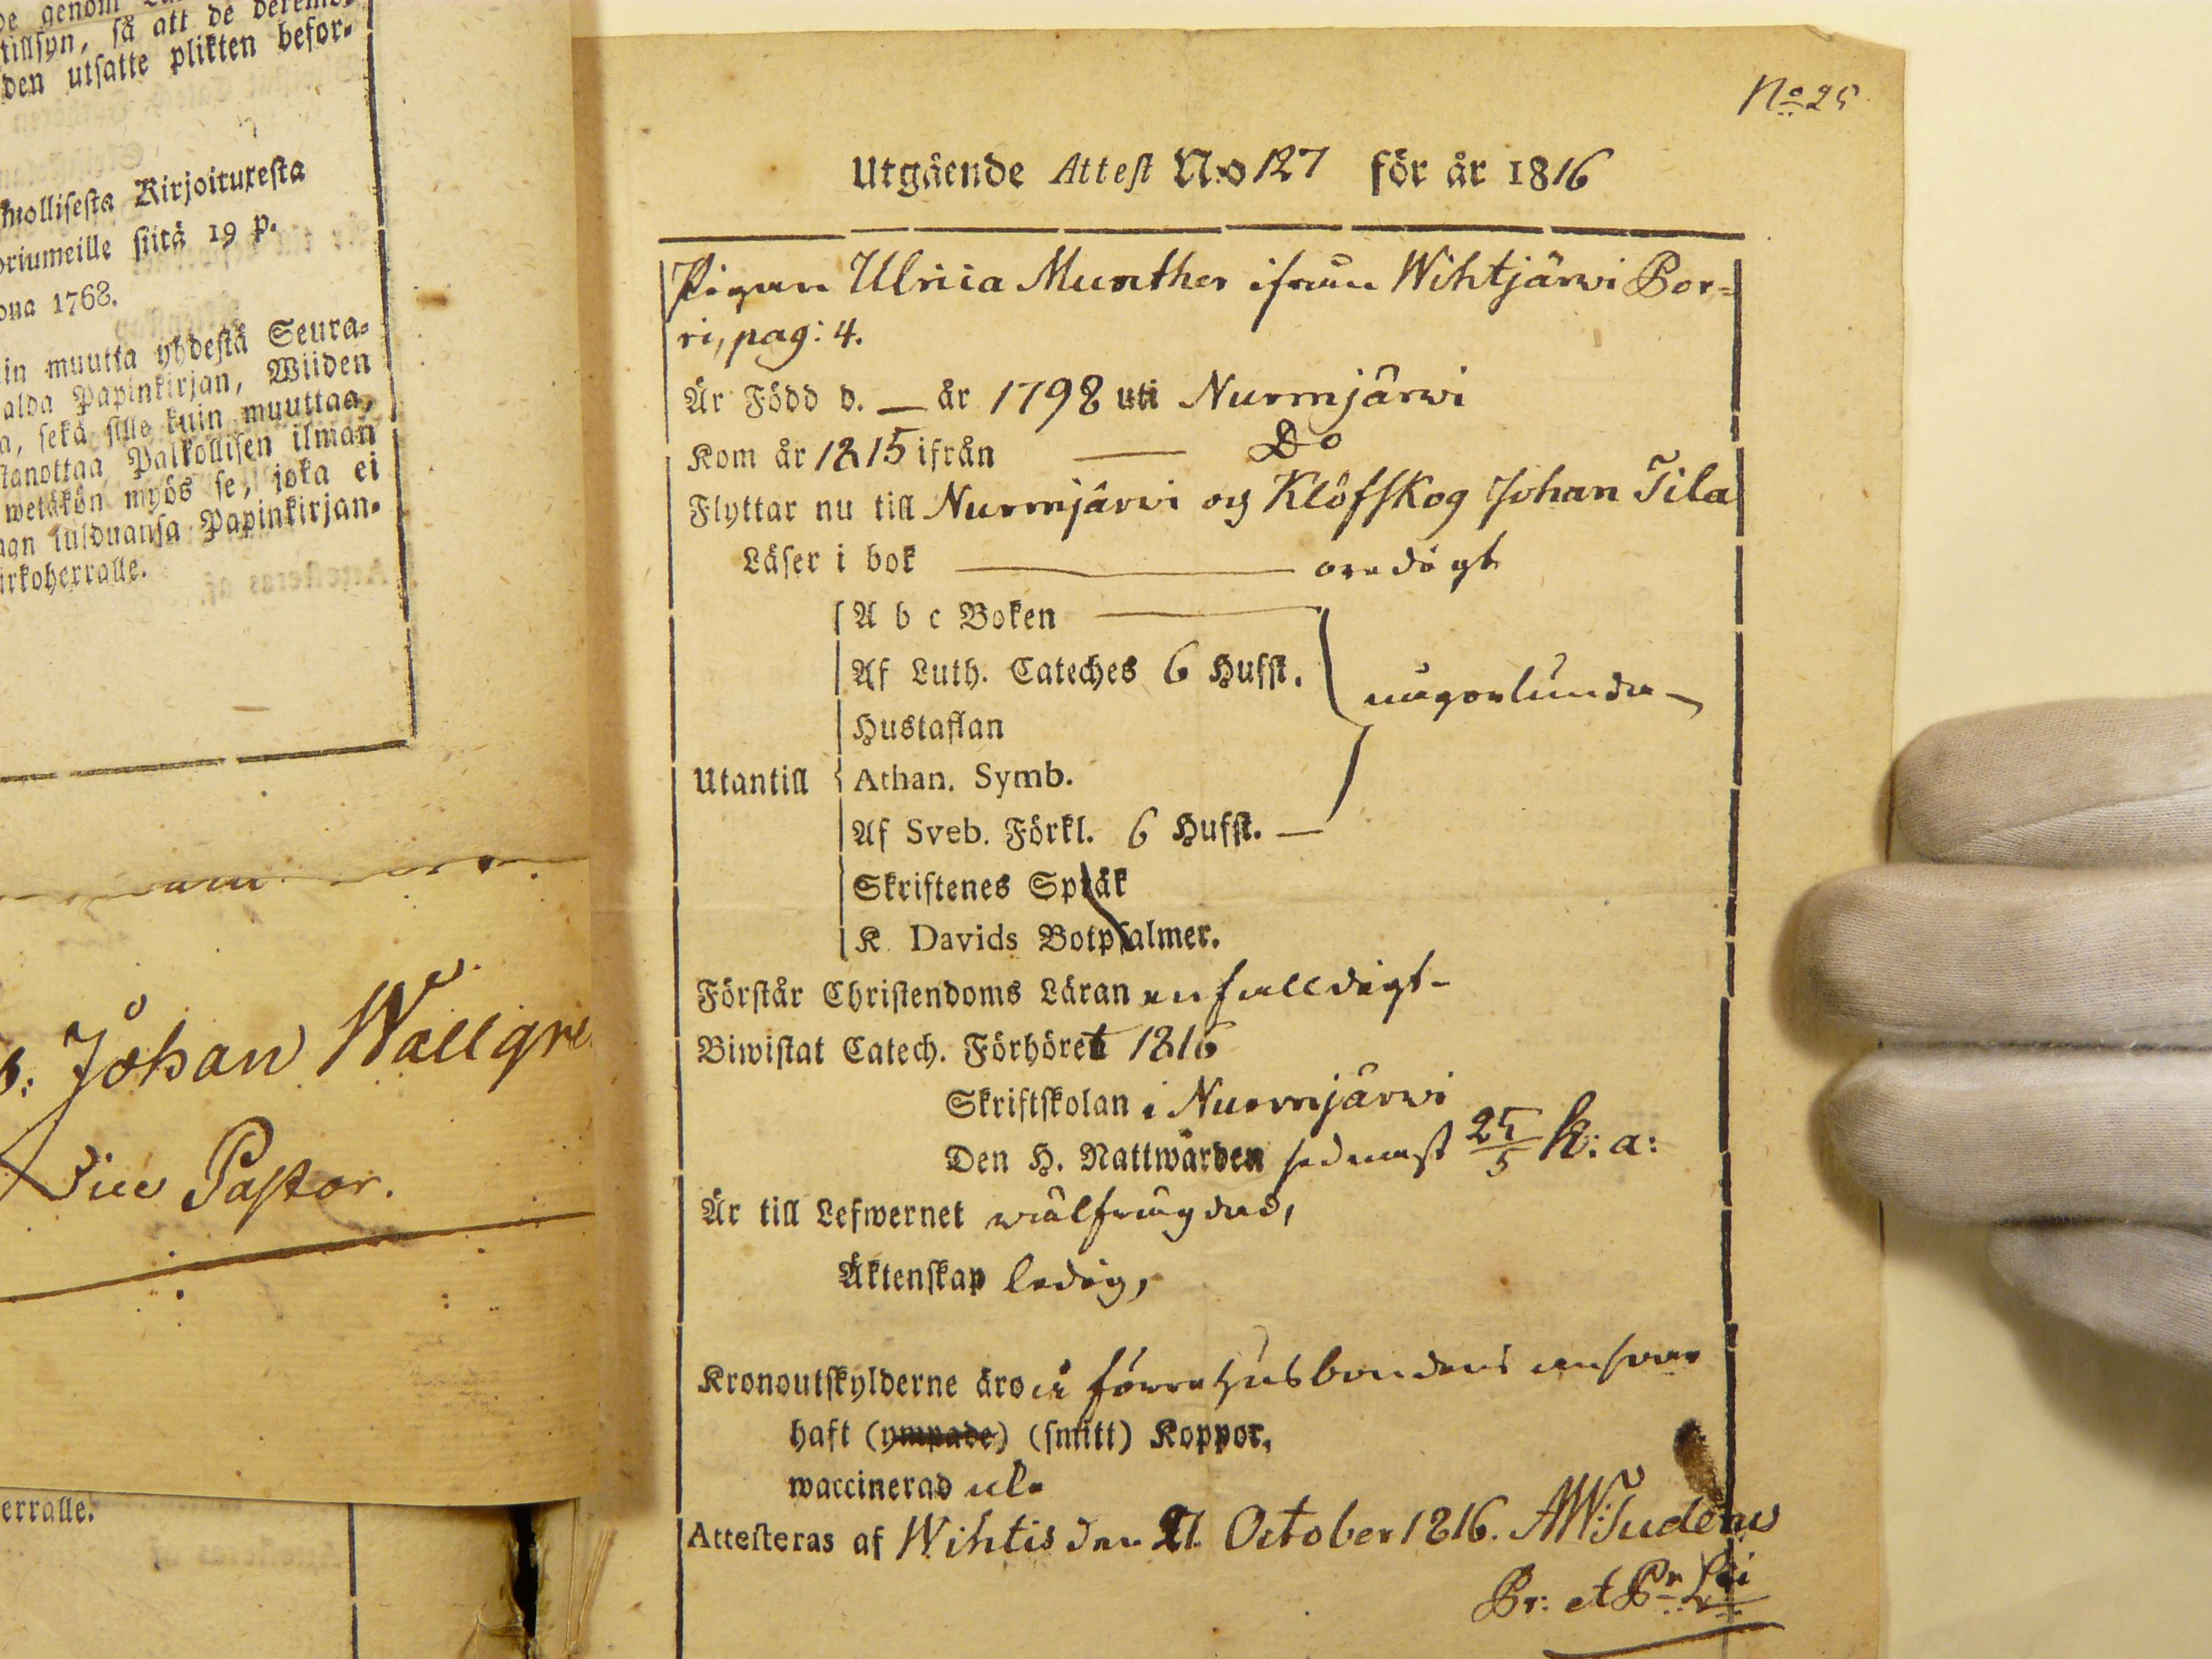 tillsyn, så att de
den utsatte plikten befor-
Kirjoituxesta
siitä 19 p.
1768.
in muutta yhdestä Seura-
Papinkirjan, Wiiden
sekä sille kuin muuttaa,
Palkollisen ilman
myös se, joka ei
Papinkirjan-
Johan Wallgre
Vice Pastor.
erralle.
No 25
Utgående Attest N:o 127 för år 1816
Pigan Ulrica Munther ifrån Wihtjärwi Bor-
ri, pag: 4.
Är Född d. — år 1798 uti Nurmjärwi
Kom år 1815 ifrån — Do
Flyttar nu till Nurmjärwi og Klöfskog Johan Tila
Läser i bok — oredigt
A b c Boken —
Af Luth. Cateches 6 Hufst.
någorlunda
Hustaflan
Utantill Athan. Symb.
Af Sveb. Förkl. 6 Hufst. —
Skriftenes Språk
K. Davids Botpsalmer.
Förstår Christendoms Läran enfalldigt-
Biwistat Catech. Förhöret 1816
Skriftskolan i Nurmjärwi
Den H. Nattwarden sednast 25/5 h: a:
Är till Lefwernet wälfrägdad,
Äktenskap ledig,
Kronoutskylderne äro å förra Husbondens answar
haft (ympade) (smitt) Koppor,
waccinerad
Attesteras af Wihtis den 21 October 1816. AW:Tudeens
Pr: et Pr